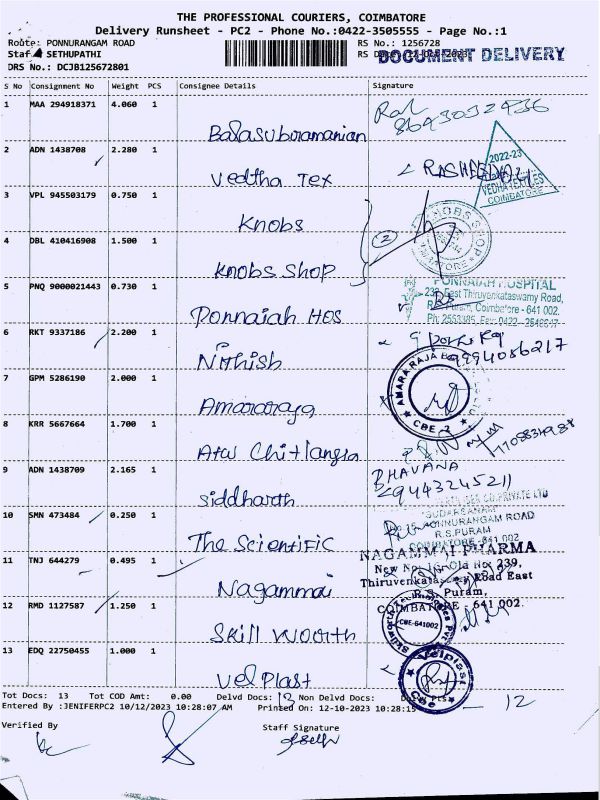 THE PROFESSIONAL COURIERS, COIMBATORE
Delivery Runsheet - PC2 - Phone No.:0422-3505555 - Page No.:1
Route: PONNURANGAM ROAD RS No.: 1256728
Staf SETHUPATHI RS D
DOCUMENT DELIVERY
DRS No.: DCJB125672801
S No Consignment No Weight PCS Consignee Details Signature
1 MAA 294918371 4.060 1 Balasuboramanian
2 ADN 1438708 2.280 1 Vedtha Tex
2022-23
VEDHA TEXTILES
COIMBATORE
3 VPL 945503179 0.750 1 Knobs
KNOBS SHOP
4 DBL 410416908 1.500 1 Knobs Shop
2
5 PNQ 9000021443 0.730 1 Ponnaiah Hos
PONNAIAH HOSPITAL
232, East Thiruvenkataswamy Road,
R.S. Puram, Coimbatore - 641 002.
6 RKT 9337186 2.200 1 Nithish
9994056217
7 GPM 5286190 2.000 1 Amararaja
AMARA RAJA
CBE-2
8 KRR 5667664 1.700 1 Atul Chitlangia
9 ADN 1438709 2.165 1 Siddharth
BHAVANA
9443245211
10 SMN 473484 0.250 1 The Scientific
PONNURANGAM ROAD
R.S.PURAM
COIMBATORE - 641 002
11 TNJ 644279 0.495 1 Nagammai
NAGAMMAI PHARMA
New No. Old No. 239,
Thiruvenkata Road East
R.S. Puram,
COIMBATORE - 641 002.
12 RMD 1127587 1.250 1 Skill Woorth
CBE-641002
13 EDQ 22750455 1.000 1 Vel Plast
Velplast
Cbe
Tot Docs: 13 Tot COD Amt: 0.00 Delvd Docs: 12 Non Delvd Docs: 12
Entered By :JENIFERPC2 10/12/2023 10:28:07 AM Printed On: 12-10-2023 10:28:15
Verified By Staff Signature